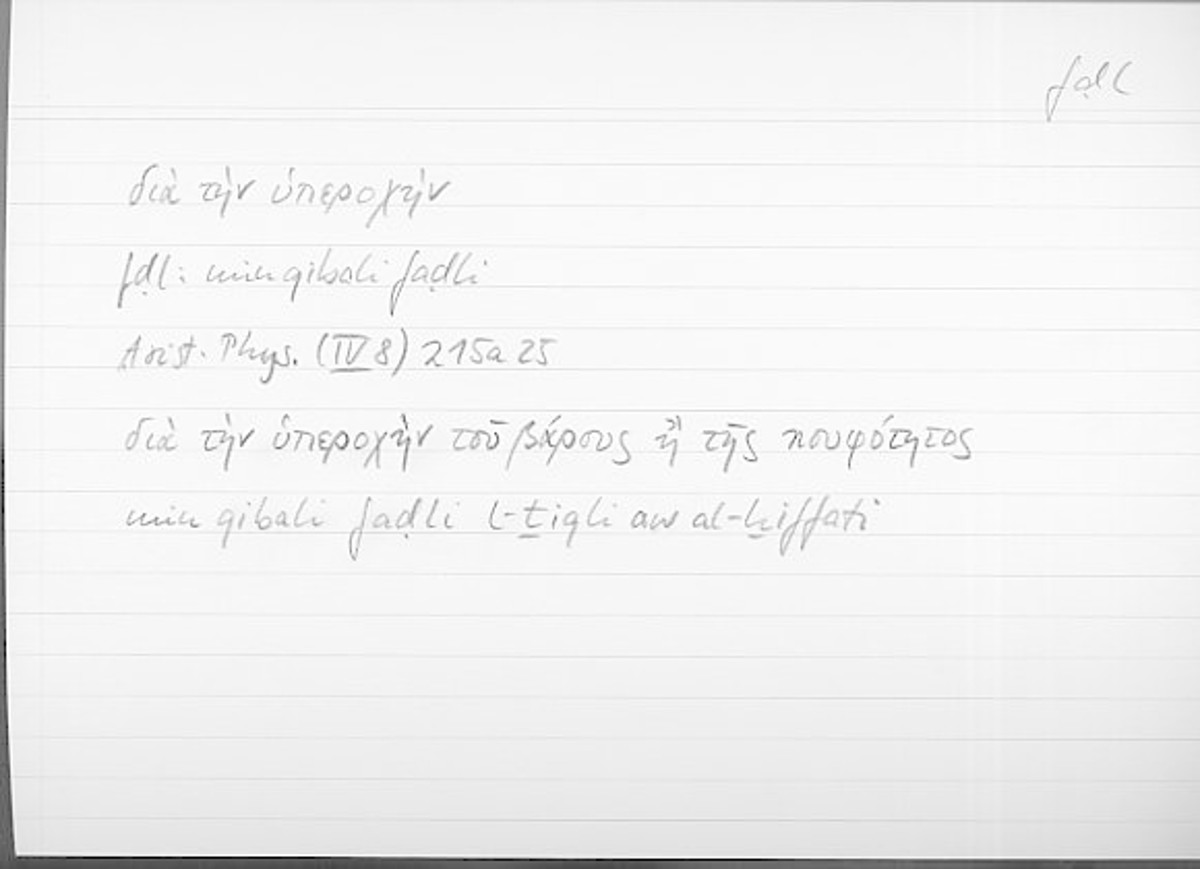 faḍl
διὰ τὴν ὑπεροχὴν
fḍl: min qibali faḍli
Arist. Phys. (IV 8) 215a 25
διὰ τὴν ὑπεροχὴν τοῦ βάρους ἢ τῆς κουφότητος
min qibali faḍli l-ṯiqli aw al-ḫiffati